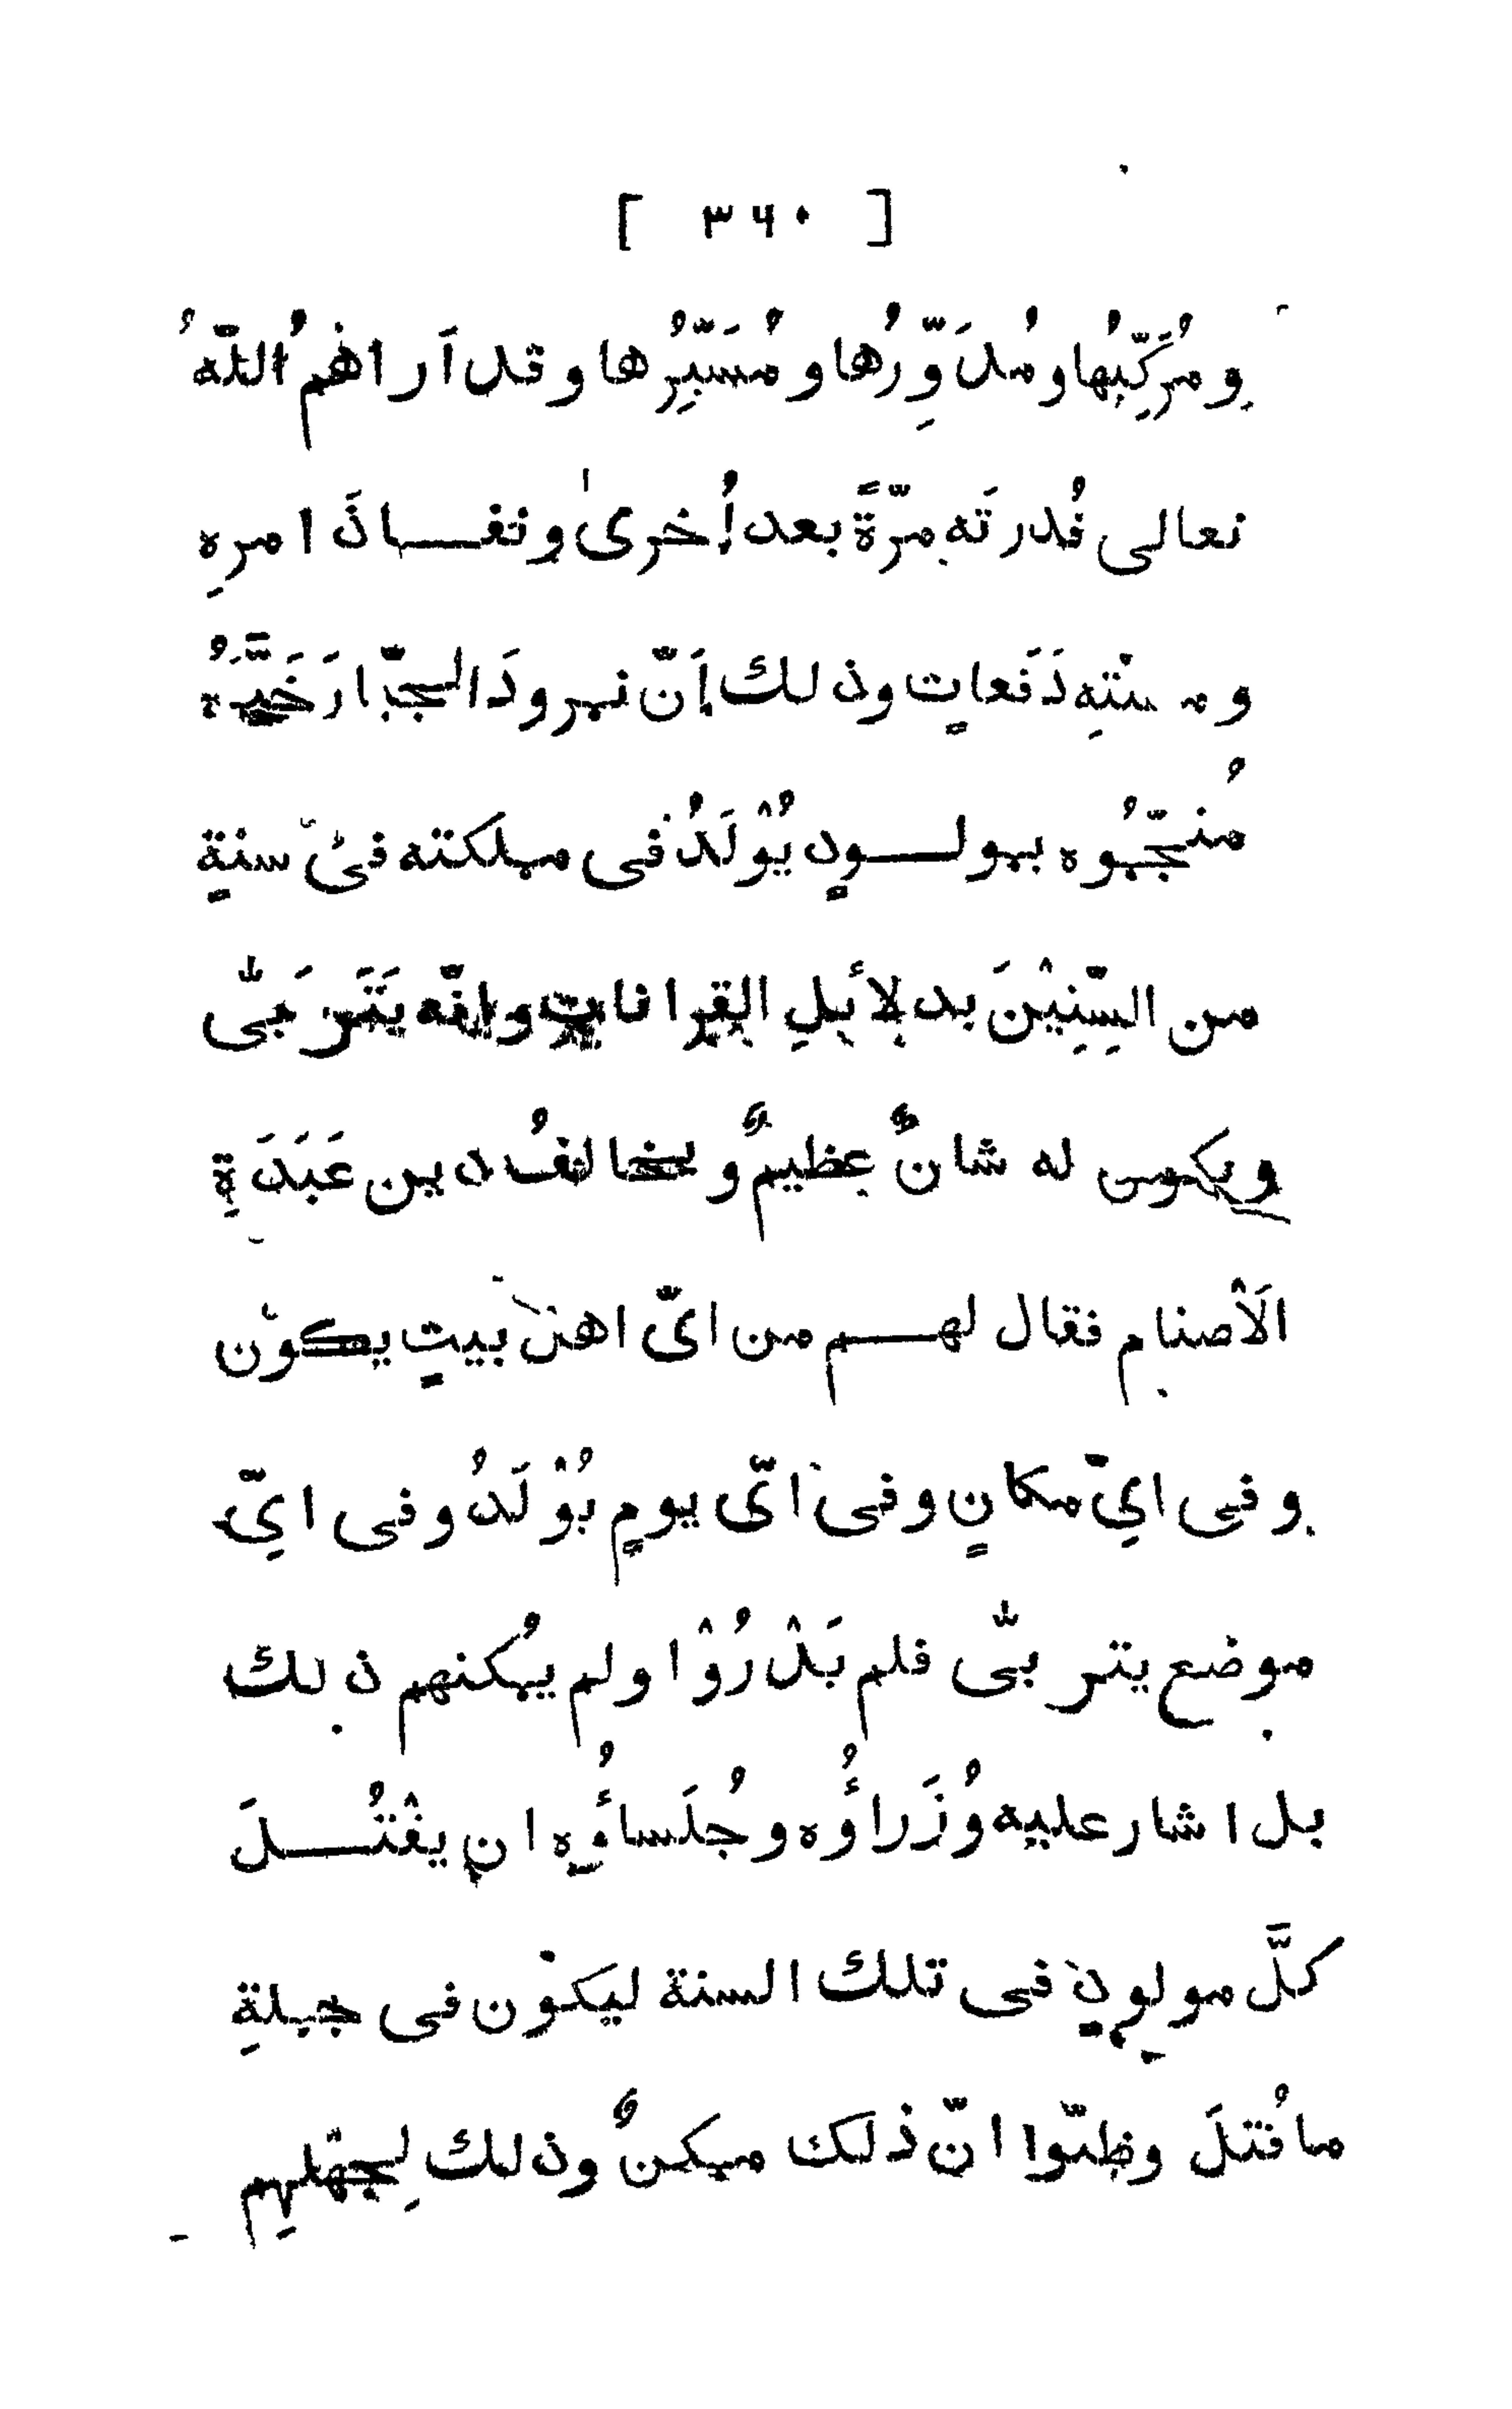 [ ٣٦٠ ]
ومُركِّبُها ومُدَوِّرُها ومُسَيِّرُها وقد اَراهُم اللّٰهُ
تعالى قُدرتَه مرّةً بعد اُخرىٰ ونفــاذَ امرِه
ومشيّتِه دَفَعاتٍ وذلك اَنّ نمرودَ الجبّارَ خَبَّرَهُ
مُنجّمُوه بمولــودٍ يُوْلَدُ فى مملكته فى سنةٍ
من السِّنِيْنَ بدلائلِ القِرانات وانّه يَتَربّٰى
ويكون له شانٌ عظيمٌ ويخالفُ دين عَبَدَةِ
الَاْصنام فقال لهــم من اىّ اهل بيتٍ يكوْن
وفى اىِّ مكانٍ وفى اىّ يومٍ يُوْلَدُ وفى اىِّ
موضع يتربّٰى فلم يَدْرُوْا ولم يمكنهم ذلك
بل اشار عليه وُزَراؤُه وجُلَساؤُه ان يقْتُــلَ
كلَّ مولودٍ فى تلك السنة ليكوْن فى جملةِ
ما قُتلَ وظنّوا انّ ذلك ممكنٌ وذلك لِجهْلِهِم